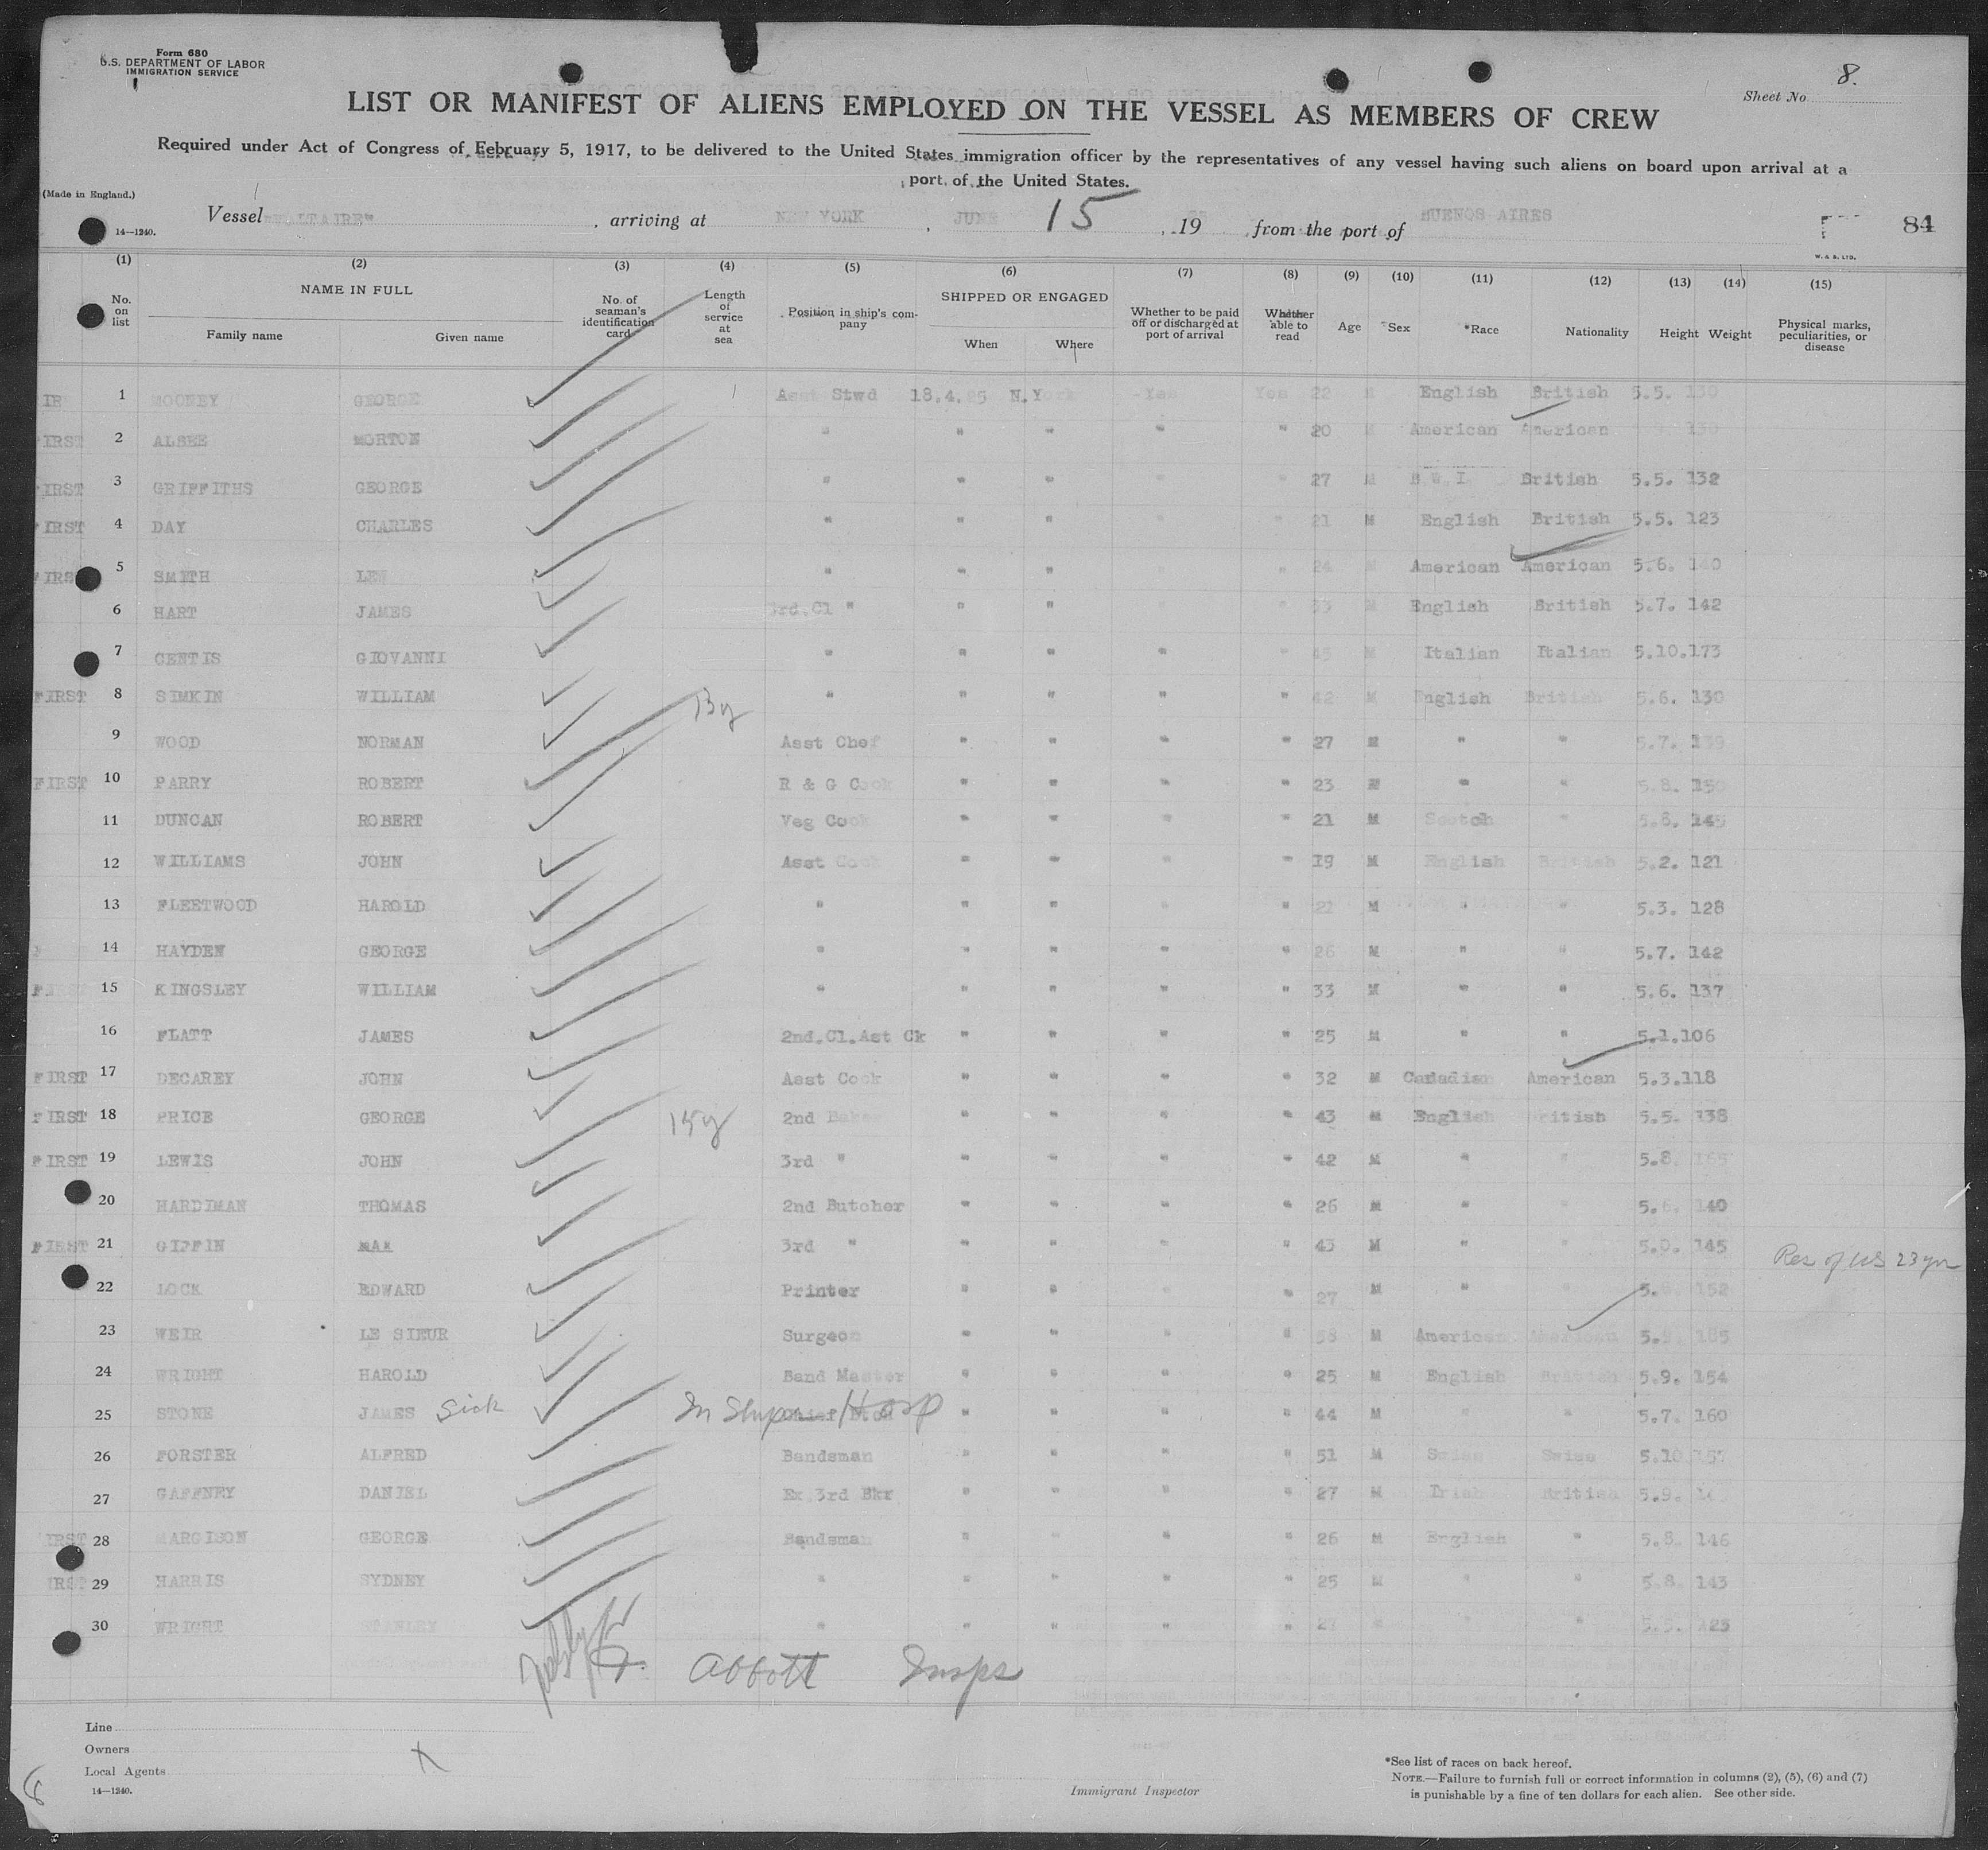 Form 680
U.S. DEPARTMENT OF LABOR
IMMIGRATION SERVICE
8.
Sheet No
LIST OR MANIFEST OF ALIENS EMPLOYED ON THE VESSEL AS MEMBERS OF CREW
Required under Act of Congress of February 5, 1917, to be delivered to the United States immigration officer by the representatives of any vessel having such aliens on board upon arrival at a
port of the United States.
(Made in England.)
14—1240.
Vessel , arriving at NEW YORK , JUNE 15 , 19 from the port of BUENOS AIRES
84
W. & S. LTD.
(1) (2) (3) (4) (5) (6) (7) (8) (9) (10) (11) (12) (13) (14) (15)
No. on list NAME IN FULL Family name Given name No. of seaman's identification card Length of service at sea Position in ship's company SHIPPED OR ENGAGED When Where Whether to be paid off or discharged at port of arrival Whether able to read Age Sex *Race Nationality Height Weight Physical marks, peculiarities, or disease
1 MOONEY GEORGE Asst Stwd 18.4.25 N.York Yes Yes 22 M English British 5.5. 130
IRST 2 ALSEE MORTON " " " " " 20 M American American
IRST 3 GRIFFITHS GEORGE " " " " " 27 M B.W.I. British 5.5. 132
IRST 4 DAY CHARLES " " " " " 21 M English British 5.5. 123
IRST 5 SMITH LEW " " " " " 24 M American American 5.6. 140
6 HART JAMES 3rd.Cl " " " " " 33 M English British 5.7. 142
7 CENTIS GIOVANNI " " " " " 45 M Italian Italian 5.10.173
FIRST 8 SIMKIN WILLIAM " " " " " 42 M English British 5.6. 130
9 WOOD NORMAN Asst Chef " " " " 27 M " " 5.7. 139
FIRST 10 PARRY ROBERT R & G Cook " " " " 23 M " " 5.8. 150
11 DUNCAN ROBERT Veg Cook " " " " 21 M Scotch " 5.8. 145
12 WILLIAMS JOHN Asst Cook " " " " 19 M English British 5.2. 121
13 FLEETWOOD HAROLD " " " " " 22 M " " 5.3. 128
14 HAYDEN GEORGE " " " " " 26 M " " 5.7. 142
15 KINGSLEY WILLIAM " " " " " 33 M " " 5.6. 137
16 FLATT JAMES 2nd.Cl.Ast Ck " " " " 25 M " " 5.1.106
FIRST 17 DECAREY JOHN Asst Cook " " " " 32 M Canadian American 5.3.118
FIRST 18 PRICE GEORGE 15y 2nd Baker " " " " 43 M English British 5.5. 138
FIRST 19 LEWIS JOHN 3rd " " " " " 42 M " " 5.8. 165
20 HARDIMAN THOMAS 2nd Butcher " " " " 26 M " " 5.6. 140
FIRST 21 GIFFIN MAX 3rd " " " " " 43 M " " 5.0. 145 Res of US 23 yrs
22 LOCK EDWARD Printer " " " " 27 M " " 152
23 WEIR LE SIEUR Surgeon " " " " 58 M American American 185
24 WRIGHT HAROLD Band Master " " " " 25 M English British 5.9. 154
25 STONE JAMES Sick In Ships Hosp " " " " 44 M " " 5.7. 160
26 FORSTER ALFRED Bandsman " " " " 51 M Swiss Swiss 5.10 157
27 GAFFNEY DANIEL Ex.3rd Bkr " " " " 27 M Irish British 5.9.
IRST 28 MARGISON GEORGE Bandsman " " " " 26 M English " 5.8. 146
IRST 29 HARRIS SYDNEY " " " " " 25 M " " 5.8. 143
30 WRIGHT STANLEY " " " " " 27 " " " 5.5. 125
Abbott Insps
Line
Owners
Local Agents
14—1240.
Immigrant Inspector
*See list of races on back hereof.
NOTE.—Failure to furnish full or correct information in columns (2), (5), (6) and (7)
is punishable by a fine of ten dollars for each alien. See other side.
8